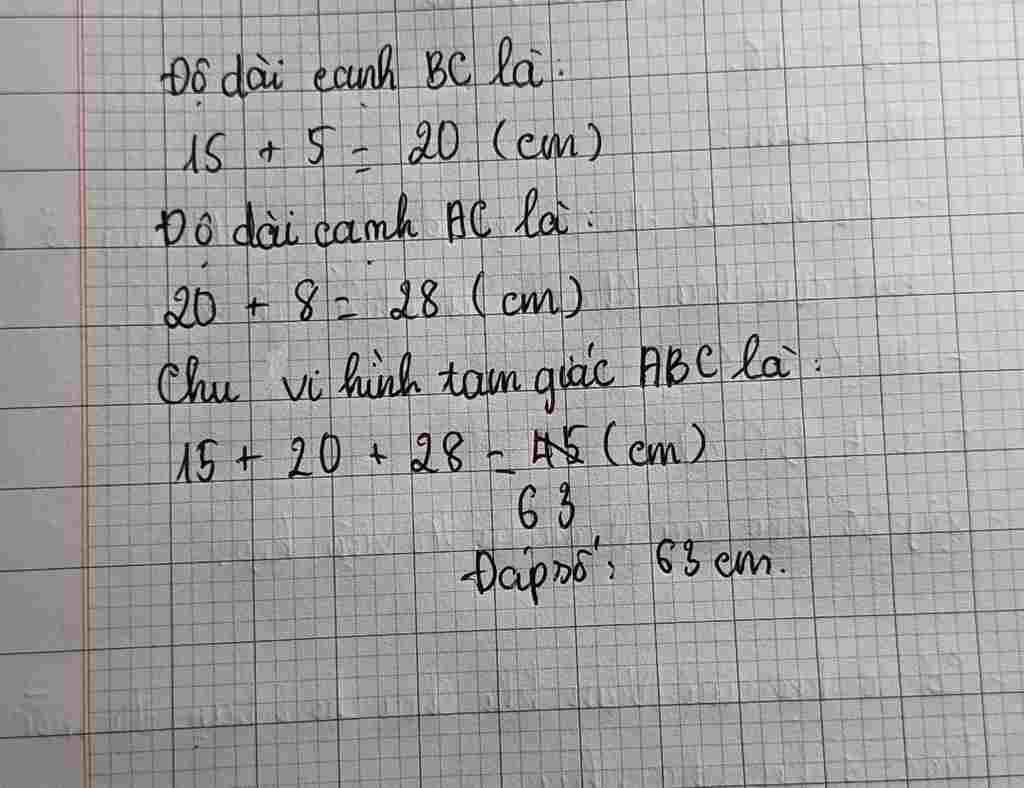 Độ dài cạnh BC là:
15 + 5 = 20 (cm)
Độ dài cạnh AC là:
20 + 8 = 28 (cm)
Chu vi hình tam giác ABC là:
15 + 20 + 28 = 45 (cm)
63
Đáp số: 63 cm.